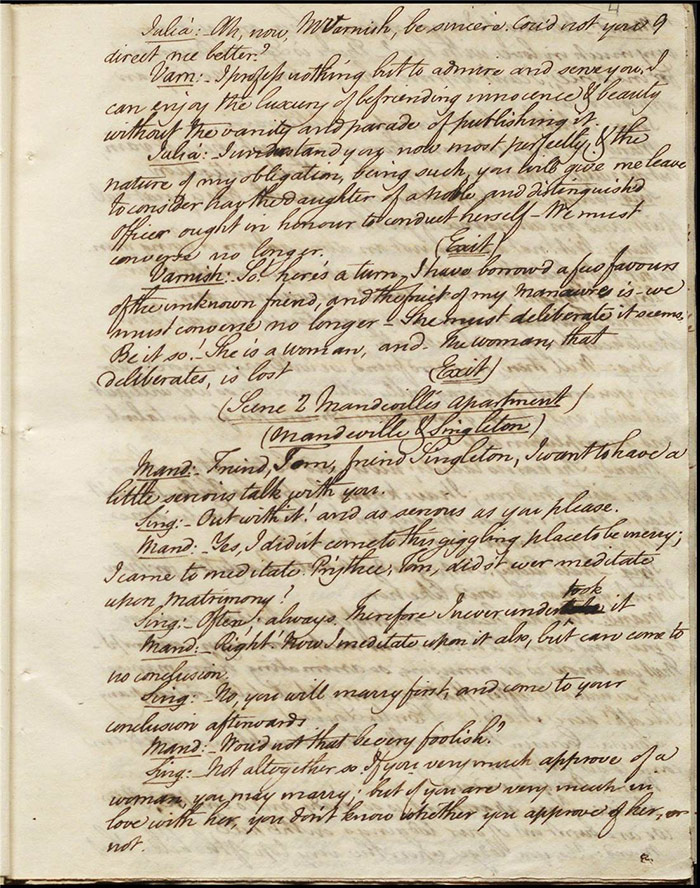 4
9
Julia:- Ah, now, Mr Varnish, be sincere. Cou'd not you
direct me better?
Varn:- I profess nothing but to admire and serve you. I
can enjoy the luxury of befriending innocence & beauty
without the vanity and parade of publishing it.
Julia:- I understand you now most perfectly, & the
nature of my obligation, being such, you will give me leave
to consider how the daughter of a noble and distinguish'd
Officer ought in honour to conduct herself - We must
converse no longer. (Exit)
Varnish:- So! here's a turn, I have borrow'd a few favours
of the unknown friend, and the fruit of my Manœuvres is - we
must converse no longer - She must deliberate it seems.
Be it so! - She is a woman, and - the woman, that
deliberates, is lost (Exit)
(Scene 2 Mandevilles apartment)
(Mandeville & Singleton)
Mand:- Friend, Tom, friend Singleton, I want to have a
little serious talk with you.
Sing:- Out with it! and as serious as you please.
Mand:- Yes, I didn't come to this giggling place to be merry;
I came to meditate. Prythee, Tom, did'st ever meditate
upon matrimony?
Sing:- Often; always. Therefore I never undertook it
Mand:- Right. Now I meditate upon it also, but can come to
no conclusion
Sing:- No, you will marry first, and come to your
conclusion afterwards
Mand:- Wou'd not that be very foolish?
Sing:- Not altogether so. If you very much approve of a
woman, you may marry; but if you are very much in
love with her, you don't know whether you approve of her, or
not.